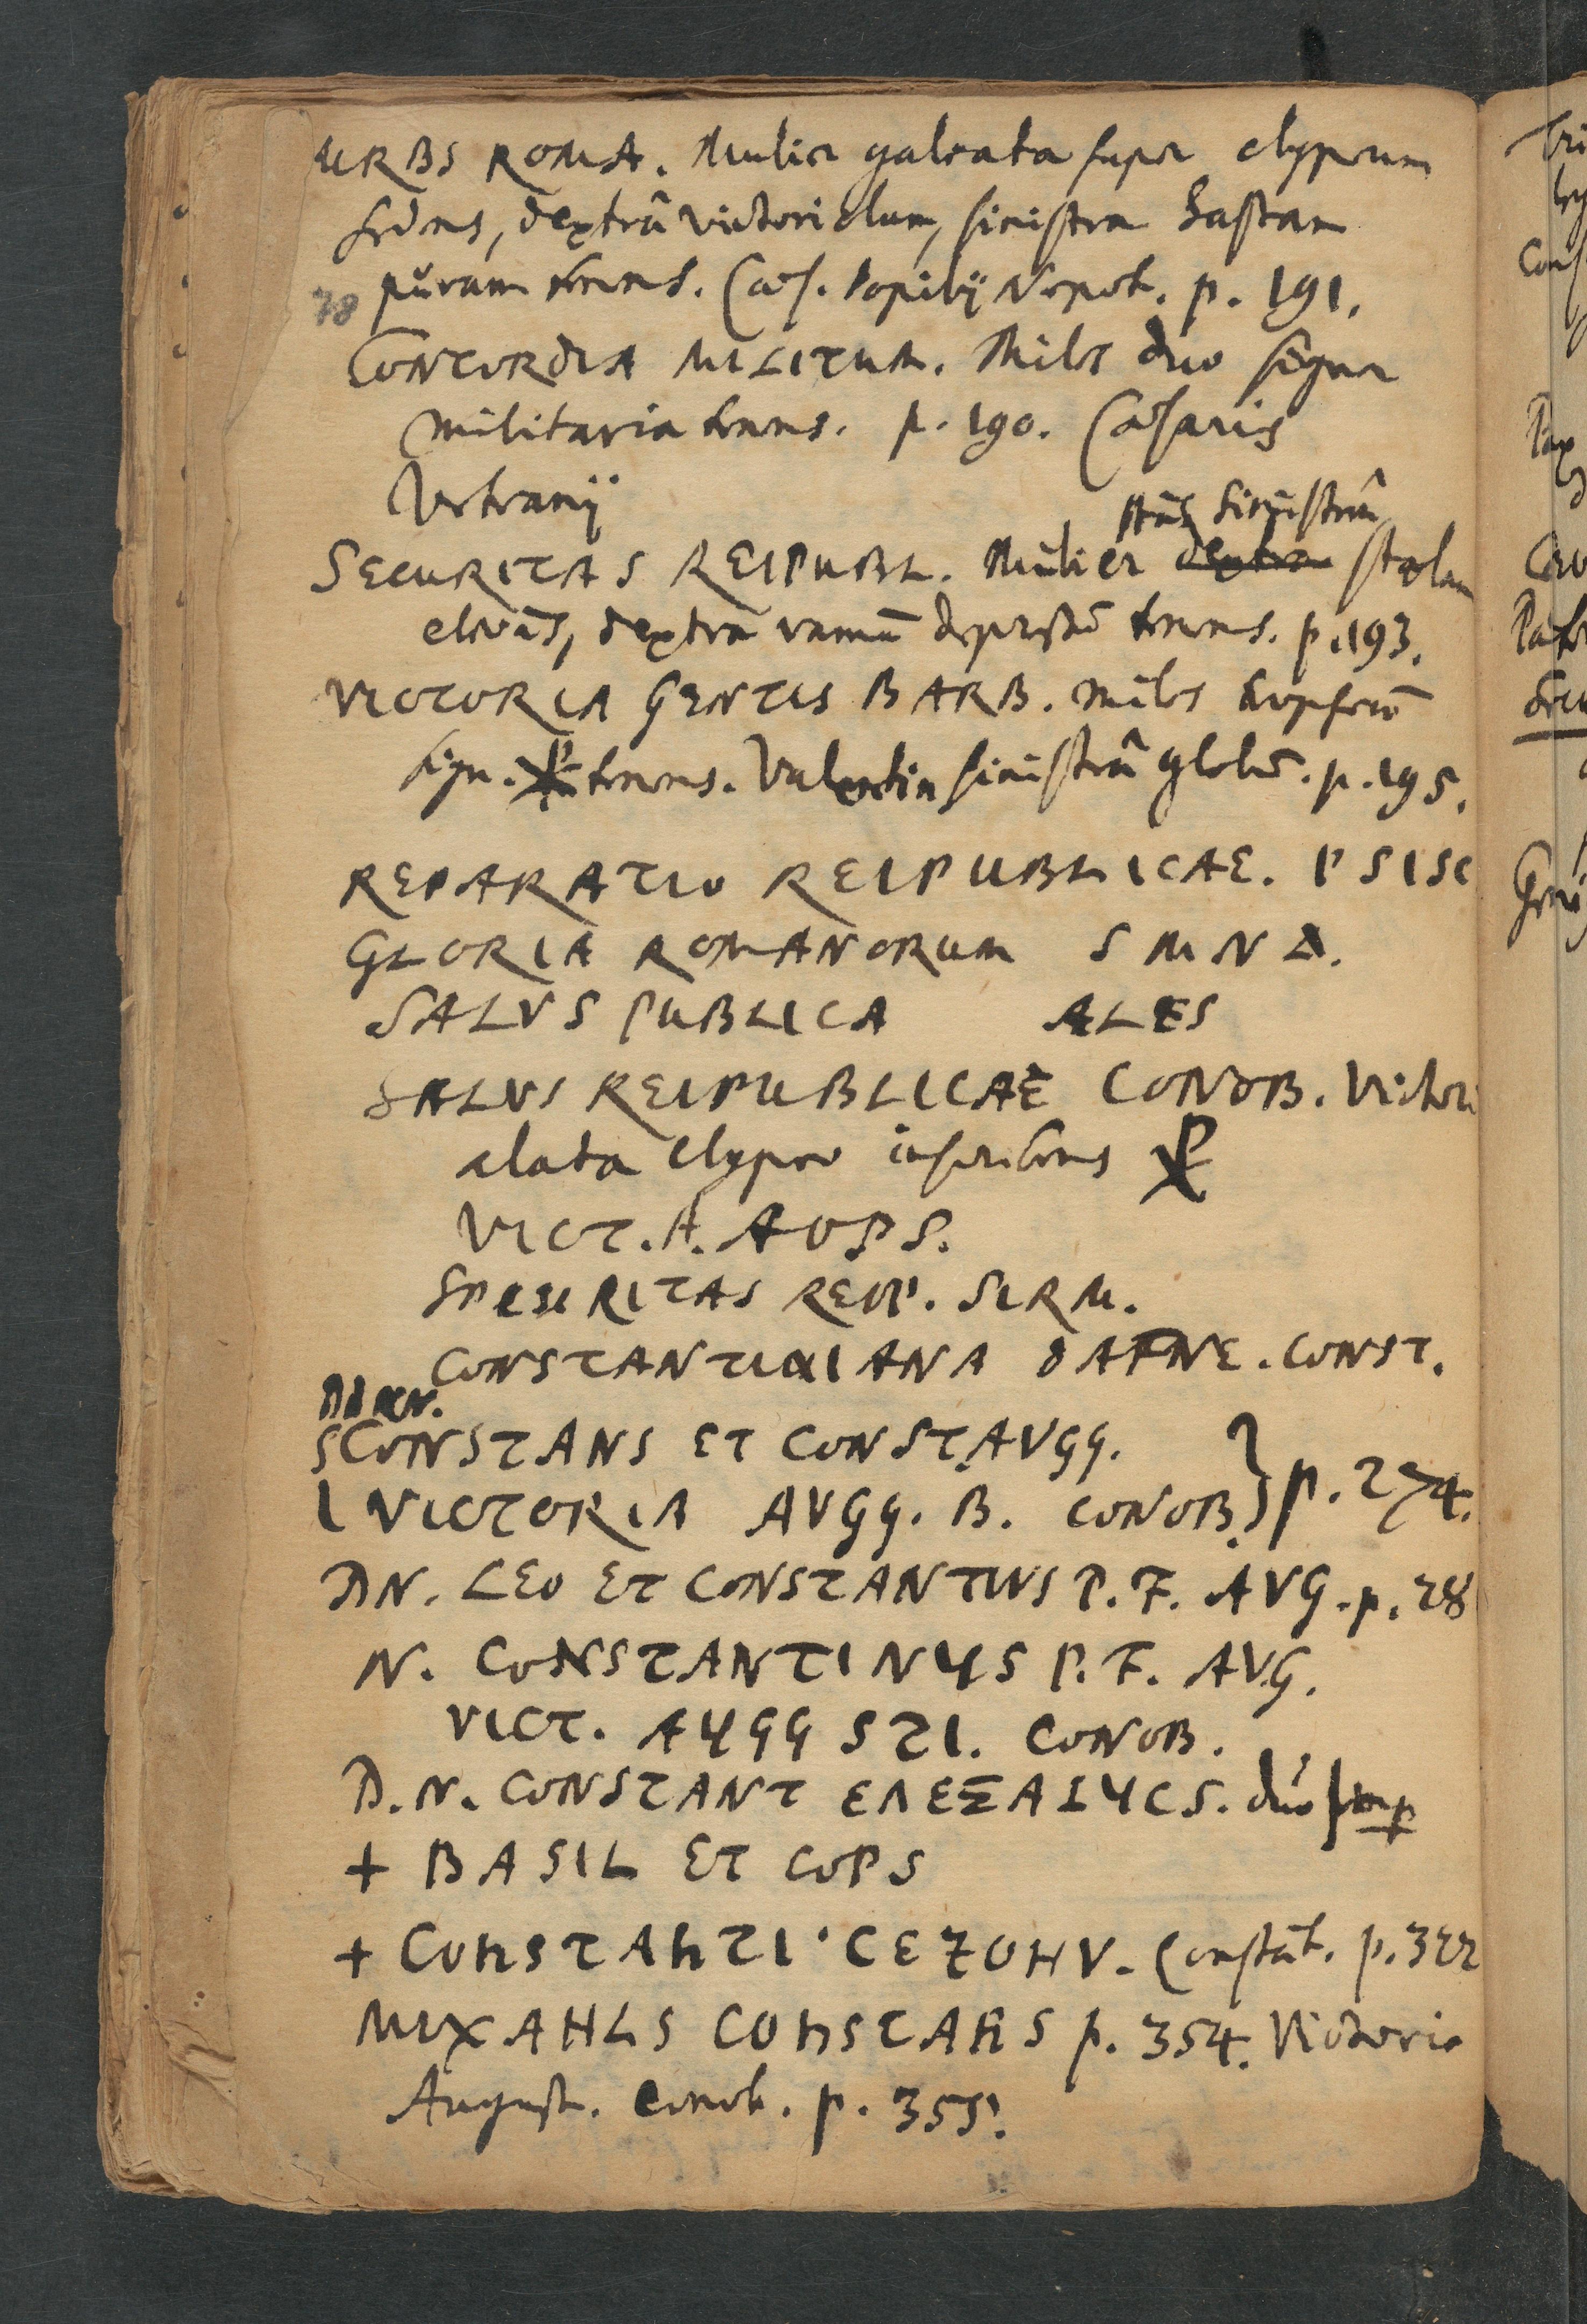 URBS ROMA. Mulier galeata super clypeum
sedens, dextrâ victoriolam, sinistra hastam
puram tenens. Cæs. Popilij Nepot. p. 191.
78
CONCORDIA MILITUM. Miles duo signa
militaria tenens. p. 190. Cæsaris
Vetranij
stãs sinistrâ
SECURITAS REIPUBL. Mulier dextra stolam
elevãs, dextra ramũ depressũ tenens. p. 193.
VICTORIA GENTIS BARB. Miles
sign. ☧ tenens. sinistrâ globũ. p. 195.
REPARATIO REIPUBLICAE. PSISC
GLORIA ROMANORUM SMNΔ.
SALVS PUBLICA ALES
SALVS REIPUBLICAE CONOB. Victori
alata clypeo inscribens ☧
VICT. A. AOPS.
REIP. SIRM.
CONSTANTINIANA DAFNE. CONST.
CONSTANS ET CONST. AVGG.
VICTORIA AVGG. B. CONOB. } p. 274.
DN. LEO ET CONSTANTINVS P. F. AVG. p. 28
N. CONSTANTINYS P. F. AVG.
VICT. AYGG SZI. CONOB.
D. N. CONSTANT ΕΛΕΞΑΙYCS. duo
+ BASIL ET COPS
+ COhSTAhTI·CEZOHV. Constãt. p. 322
MIXAHLS COhSTAhS p. 354. Victoria
August. conob. p. 355.